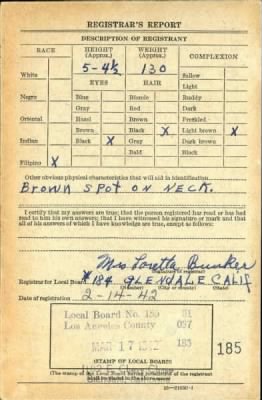 REGISTRAR'S REPORT
DESCRIPTION OF REGISTRANT
RACE HEIGHT (Approx.) WEIGHT (Approx.) COMPLEXION
5-4½ 130
White EYES HAIR Sallow
Light
Negro Blue Blonde Ruddy
Gray Red Dark
Oriental Hazel Brown Freckled
Brown Black X Light brown X
Indian Black X Gray Dark brown
Bald Black
Filipino X
Other obvious physical characteristics that will aid in identification
BROWN SPOT ON NECK.
I certify that my answers are true; that the person registered has read or has had
read to him his own answers; that I have witnessed his signature or mark and that
all of his answers of which I have knowledge are true, except as follows:
Mrs Loretta Bunker
(Signature of registrar)
Registrar for Local Board #184 GLENDALE CALIF
(Number) (City or county) (State)
Date of registration 2-14-42
Local Board No. 185 31
Los Angeles County 037
MAR 17 1942 185
185
(STAMP OF LOCAL BOARD)
(The stamp of the Local Board having jurisdiction of the registrant
shall be placed in the above space.)